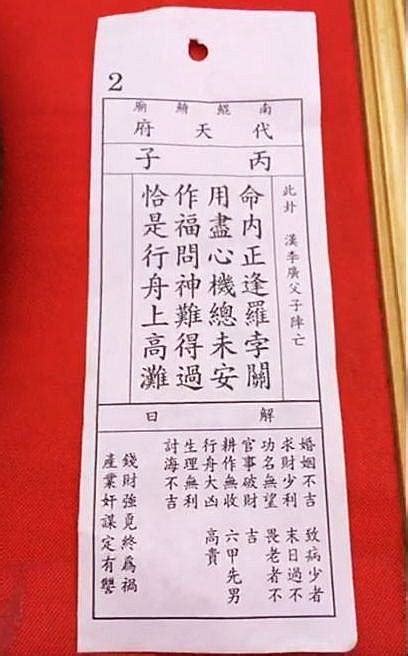 2
南鯤鯓廟
代天府
丙子
此卦 漢李廣父子陣亡
命內正逢羅孛關
用盡心機總未安
作福問神難得過
恰是行舟上高灘
解曰
婚姻不吉 致病少者
求財少利 末日過不
功名無望 畏老者不
官事破財 吉
耕作無收 六甲先男
行舟大凶 高貴
生理無利
討海不吉
錢財強覓終爲禍
產業奸謀定有讐